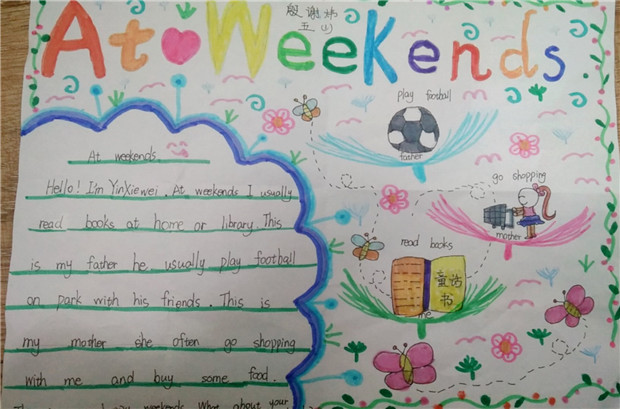 At Weekends
五(1)
At weekends
Hello! I'm YinXiewei. At weekends I usually
read books at home or library. This
is my father he usually play football
on park with his friends. This is
my mother she often go shopping
with me and buy some food.
weekends. What about your
play football
father
go shopping
mother
read books
童话
书
me